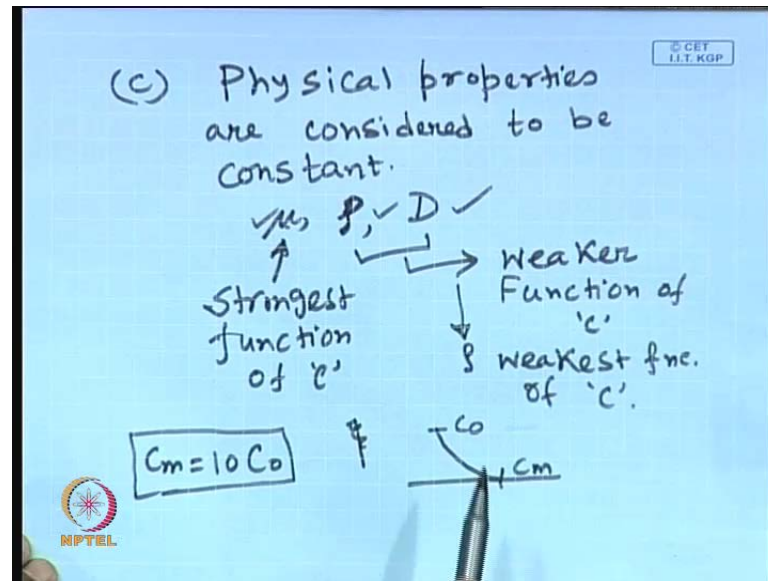 © CET
I.I.T. KGP
(c) Physical properties
are considered to be
constant.
μ, ρ, D
Weaker
Function of
'c'
Strongest
function
of 'c'
ρ weakest fnc.
of 'c'.
Cm = 10 Co
Co
Cm
NPTEL